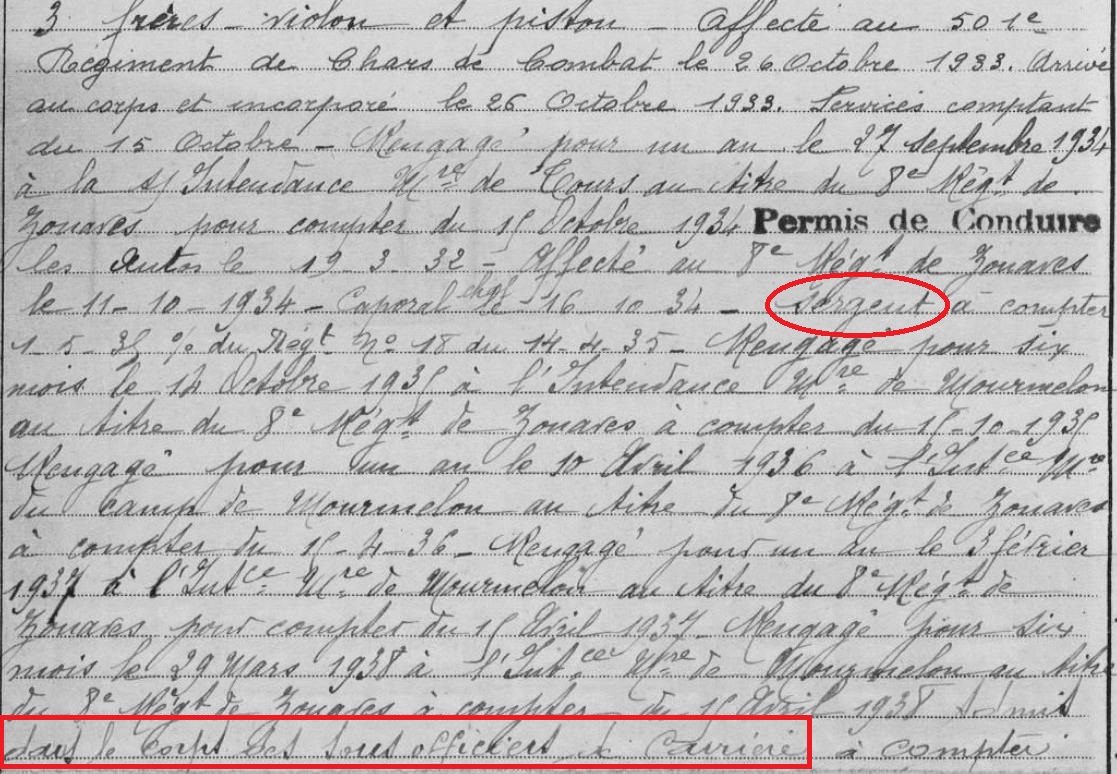 3 frères - violon et piston - Affecté au 501e
Régiment de Chars de Combat le 26 Octobre 1933. Arrivé
au corps et incorporé le 26 Octobre 1933. Services comptant
du 15 Octobre - Rengagé pour un an le 27 septembre 1934
à la s/Intendance Mre de Tours au titre du 8e Régt de
Zouaves pour compter du 15 Octobre 1934 Permis de Conduire
les Autos le 19-3-32 - Affecté au 8e Régt de Zouaves
le 11-10-1934 - Caporal chef le 16 10 34 - Sergent à compter
1-5-35 % du Régt No 18 du 14-4-35 - Rengagé pour six
mois le 14 Octobre 1935 à l'Intendance Mre de Mourmelon
au titre du 8e Régt de Zouaves à compter du 15-10-1935
Rengagé pour un an le 10 Avril 1936 à l'Intce Mre
du camp de Mourmelon au titre du 8e Régt de Zouaves
à compter du 15-4-36 - Rengagé pour un an le 3 février
1937 à l'Intce Mre de Mourmelon au titre du 8e Régt de
Zouaves pour compter du 15 Avril 1937. Rengagé pour six
mois le 29 Mars 1938 à l'Intce Mre de Mourmelon au titre
du 8e Régt de Zouaves à compter du 15 Avril 1938 Admis
dans le corps des sous officiers de carrière à compter